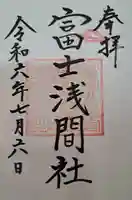 奉拝
冨士浅間社
令和六年七月二八日